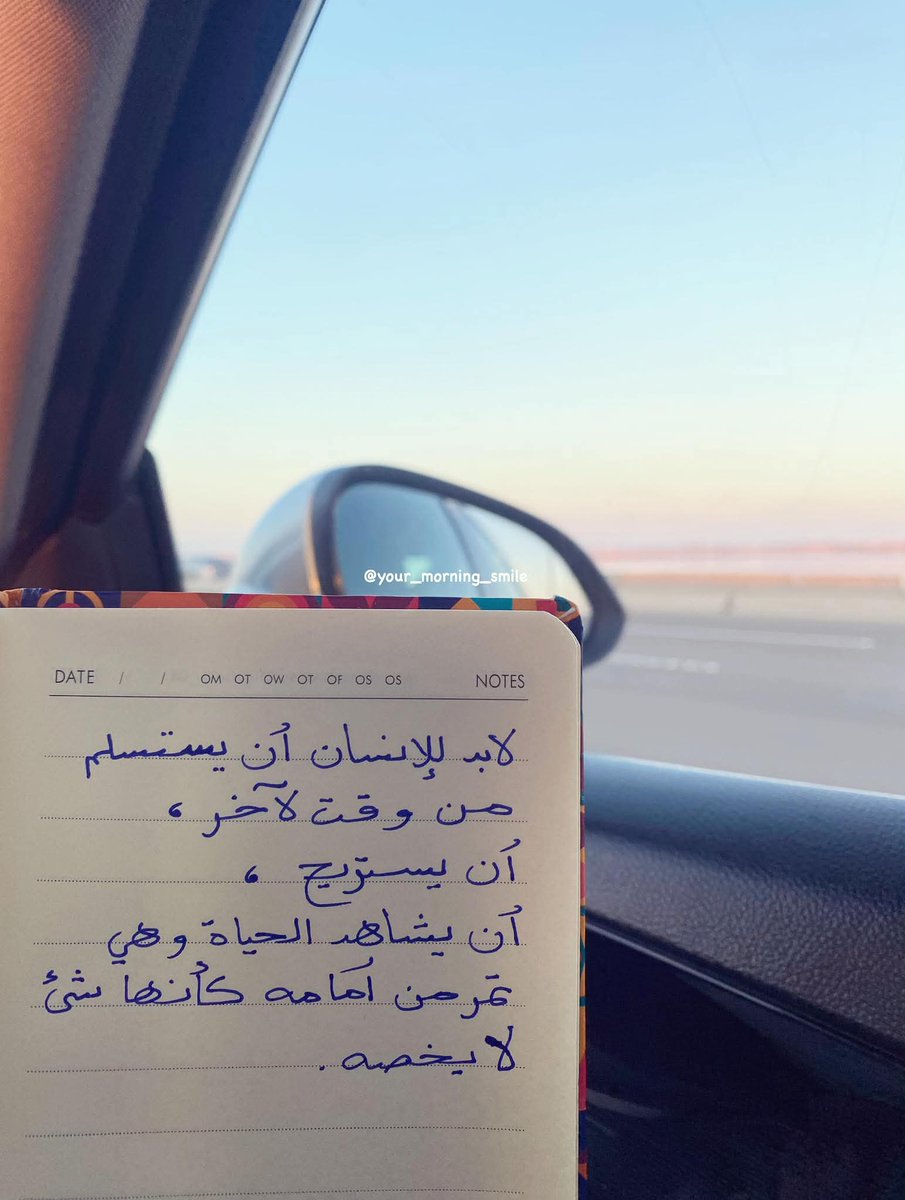 @your_morning_smile
DATE / / OM OT OW OT OF OS OS NOTES
لابد للإنسان أن يستسلم
من وقت لآخر ،
أن يستريح ،
أن يشاهد الحياة وهي
تمر من أمامه كأنها شئ
لا يخصه .